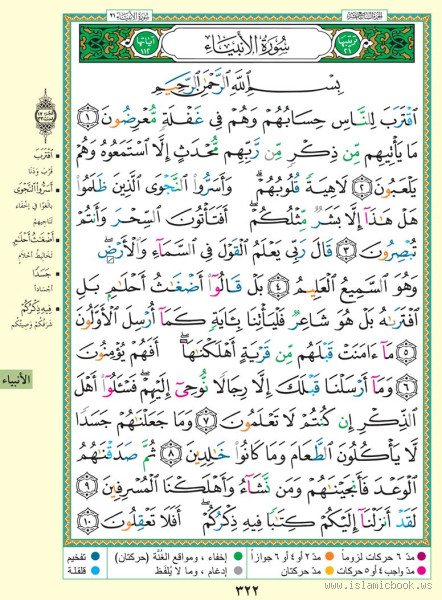 سُورَةُ الأَنْبِيَاء ٢١
سُورَةُ الأَنبِيَاء
ترتيبها ٢١
آياتها ١١٢
بِسْمِ ٱللَّهِ ٱلرَّحْمَٰنِ ٱلرَّحِيمِ
ٱقْتَرَبَ لِلنَّاسِ حِسَابُهُمْ وَهُمْ فِى غَفْلَةٍ مُّعْرِضُونَ ١
مَا يَأْتِيهِم مِّن ذِكْرٍ مِّن رَّبِّهِم مُّحْدَثٍ إِلَّا ٱسْتَمَعُوهُ وَهُمْ
يَلْعَبُونَ ٢ لَاهِيَةً قُلُوبُهُمْ ۗ وَأَسَرُّوا۟ ٱلنَّجْوَى ٱلَّذِينَ ظَلَمُوا۟
هَلْ هَٰذَآ إِلَّا بَشَرٌ مِّثْلُكُمْ ۖ أَفَتَأْتُونَ ٱلسِّحْرَ وَأَنتُمْ
تُبْصِرُونَ ٣ قَالَ رَبِّى يَعْلَمُ ٱلْقَوْلَ فِى ٱلسَّمَآءِ وَٱلْأَرْضِ ۖ
وَهُوَ ٱلسَّمِيعُ ٱلْعَلِيمُ ٤ بَلْ قَالُوٓا۟ أَضْغَٰثُ أَحْلَٰمٍۭ بَلِ
ٱفْتَرَىٰهُ بَلْ هُوَ شَاعِرٌ فَلْيَأْتِنَا بِـَٔايَةٍ كَمَآ أُرْسِلَ ٱلْأَوَّلُونَ
٥ مَآ ءَامَنَتْ قَبْلَهُم مِّن قَرْيَةٍ أَهْلَكْنَٰهَآ ۖ أَفَهُمْ يُؤْمِنُونَ
٦ وَمَآ أَرْسَلْنَا قَبْلَكَ إِلَّا رِجَالًا نُّوحِىٓ إِلَيْهِمْ ۖ فَسْـَٔلُوٓا۟ أَهْلَ
ٱلذِّكْرِ إِن كُنتُمْ لَا تَعْلَمُونَ ٧ وَمَا جَعَلْنَٰهُمْ جَسَدًا
لَّا يَأْكُلُونَ ٱلطَّعَامَ وَمَا كَانُوا۟ خَٰلِدِينَ ٨ ثُمَّ صَدَقْنَٰهُمُ
ٱلْوَعْدَ فَأَنجَيْنَٰهُمْ وَمَن نَّشَآءُ وَأَهْلَكْنَا ٱلْمُسْرِفِينَ ٩
لَقَدْ أَنزَلْنَآ إِلَيْكُمْ كِتَٰبًا فِيهِ ذِكْرُكُمْ ۖ أَفَلَا تَعْقِلُونَ ١٠
اقْتَرَبَ
قَرُبَ وَدَنَا
أَسَرُّوا النَّجْوَى
بالَغُوا في إخفاء
تَناجِيهم
أَضْغَاثُ أَحْلَامٍ
تَخَالِيطُ أحلامٍ
جَسَدًا
أجسادا
فِيهِ ذِكْرُكُمْ
شَرَفُكُم وَصِيتُكُم
الأنبياء
مدّ ٦ حركات لزوماً
مدّ ٢ أو ٤ أو ٦ جوازاً
إخفاء، ومواقع الغُنَّة (حركتان)
تفخيم
مدّ واجب ٤ أو ٥ حركات
مدّ حركتان
إدغام، وما لا يُلفَظ
قلقلة
٣٢٢
www.islamicbook.ws